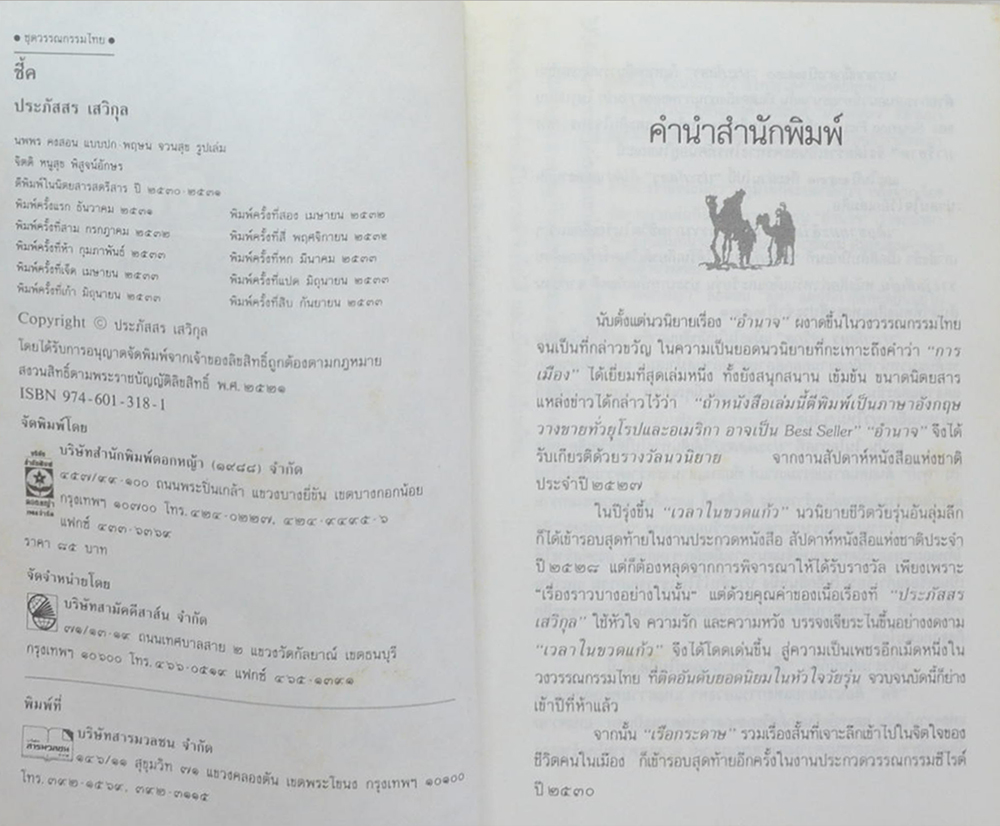 ● ชุดวรรณกรรมไทย ●
ชี้ค
ประภัสสร เสวิกุล
นพพร คงสอน แบบปก พฤษน จวนสุข รูปเล่ม
จิตติ หนูสุข พิสูจน์อักษร
ตีพิมพ์ในนิตยสารสตรีสาร ปี ๒๕๓๐-๒๕๓๑
พิมพ์ครั้งแรก ธันวาคม ๒๕๓๑
พิมพ์ครั้งที่สอง เมษายน ๒๕๓๒
พิมพ์ครั้งที่สาม กรกฎาคม ๒๕๓๒
พิมพ์ครั้งที่สี่ พฤศจิกายน ๒๕๓๒
พิมพ์ครั้งที่ห้า กุมภาพันธ์ ๒๕๓๓
พิมพ์ครั้งที่หก มีนาคม ๒๕๓๓
พิมพ์ครั้งที่เจ็ด เมษายน ๒๕๓๓
พิมพ์ครั้งที่แปด มิถุนายน ๒๕๓๓
พิมพ์ครั้งที่เก้า มิถุนายน ๒๕๓๓
พิมพ์ครั้งที่สิบ กันยายน ๒๕๓๓
Copyright © ประภัสสร เสวิกุล
โดยได้รับการอนุญาตจัดพิมพ์จากเจ้าของลิขสิทธิ์ถูกต้องตามกฎหมาย
สงวนสิทธิ์ตามพระราชบัญญัติลิขสิทธิ์ พ.ศ. ๒๕๒๑
ISBN 974-601-318-1
จัดพิมพ์โดย
บริษัทสำนักพิมพ์ดอกหญ้า (๑๙๘๘) จำกัด
๔๕๗/๙๙-๑๐๐ ถนนพระปิ่นเกล้า แขวงบางยี่ขัน เขตบางกอกน้อย
กรุงเทพฯ ๑๐๗๐๐ โทร. ๔๒๔-๐๒๒๗, ๔๒๔-๙๔๙๕-๖
แฟกซ์ ๔๓๓-๖๓๖๙
ราคา ๘๕ บาท
จัดจำหน่ายโดย
บริษัทสามัคคีสาส์น จำกัด
๗๑/๑๓-๑๙ ถนนเทศบาลสาย ๒ แขวงวัดกัลยาณ์ เขตธนบุรี
กรุงเทพฯ ๑๐๖๐๐ โทร. ๔๖๖-๐๕๑๙ แฟกซ์ ๔๖๕-๑๓๙๑
พิมพ์ที่
สารมวลชน
บริษัทสารมวลชน จำกัด
๑๔๖/๑๑ สุขุมวิท ๗๑ แขวงคลองตัน เขตพระโขนง กรุงเทพฯ ๑๐๑๐๐
โทร. ๓๙๒-๑๕๖๙, ๓๙๒-๓๑๑๕
คำนำสำนักพิมพ์
นับตั้งแต่นวนิยายเรื่อง “อำนาจ” ผงาดขึ้นในวงวรรณกรรมไทย
จนเป็นที่กล่าวขวัญ ในความเป็นยอดนวนิยายที่กะเทาะถึงคำว่า “การ
เมือง” ได้เยี่ยมที่สุดเล่มหนึ่ง ทั้งยังสนุกสนาน เข้มข้น ขนาดนิตยสาร
แหล่งข่าวได้กล่าวไว้ว่า “ถ้าหนังสือเล่มนี้ตีพิมพ์เป็นภาษาอังกฤษ
วางขายทั่วยุโรปและอเมริกา อาจเป็น Best Seller” “อำนาจ” จึงได้
รับเกียรติด้วยรางวัลนวนิยาย จากงานสัปดาห์หนังสือแห่งชาติ
ประจำปี ๒๕๒๗
ในปีรุ่งขึ้น “เวลาในขวดแก้ว” นวนิยายชีวิตวัยรุ่นอันลุ่มลึก
ก็ได้เข้ารอบสุดท้ายในงานประกวดหนังสือ สัปดาห์หนังสือแห่งชาติประจำ
ปี ๒๕๒๘ แต่ก็ต้องหลุดจากการพิจารณาให้ได้รับรางวัล เพียงเพราะ
“เรื่องราวบางอย่างในนั้น” แต่ด้วยคุณค่าของเนื้อเรื่องที่ “ประภัสสร
เสวิกุล” ใช้หัวใจ ความรัก และความหวัง บรรจงเจียระไนขึ้นอย่างงดงาม
“เวลาในขวดแก้ว” จึงได้โดดเด่นขึ้น สู่ความเป็นเพชรอีกเม็ดหนึ่งใน
วงวรรณกรรมไทย ที่ติดอันดับยอดนิยมในหัวใจวัยรุ่น จวบจนบัดนี้ก็ย่าง
เข้าปีที่ห้าแล้ว
จากนั้น “เรือกระดาษ” รวมเรื่องสั้นที่เจาะลึกเข้าไปในจิตใจของ
ชีวิตคนในเมือง ก็เข้ารอบสุดท้ายอีกครั้งในงานประกวดวรรณกรรมซีไรต์
ปี ๒๕๓๐